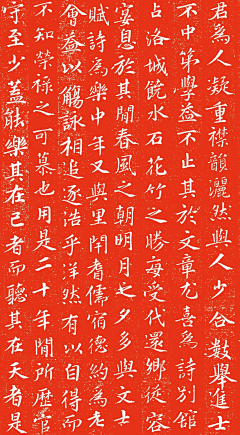 君為人凝重襟韻灑然與人少合數舉進士
不中第學益不止其於文章尤喜為詩別館
占洛城饒水石花竹之勝每受代還鄉從容
宴息於其間春風之朝明月之夕多與文士
賦詩為樂中年又與里閈耆儒宿德約為老
會益以觴詠相追逐浩乎洋然有以自得而
不知榮祿之可慕也用是二十年間所歷官
守至少蓋能樂其在己者而聽其在天者是